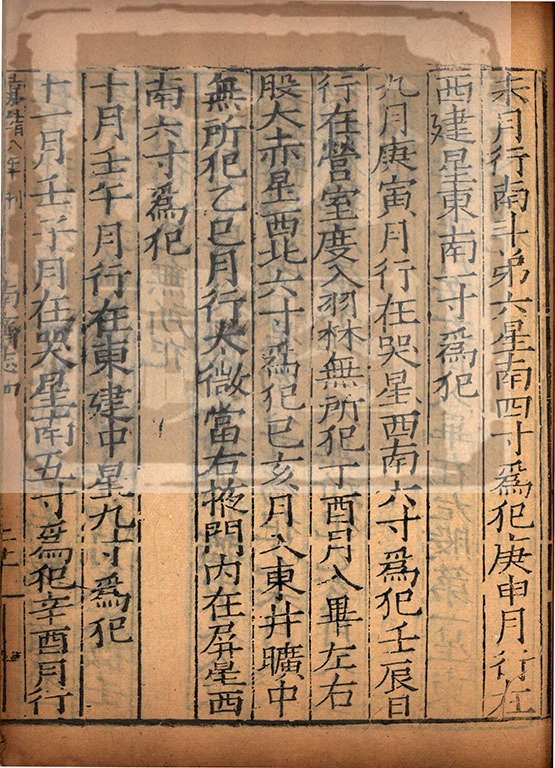 未月行南斗第六星南四寸爲犯庚申月行在
西建星東南一寸爲犯
九月庚寅月行在哭星西南六寸爲犯壬辰月
行在營室度入羽林無所犯丁酉月入畢左右
股大赤星西北六寸爲犯己亥月入東井曠中
無所犯乙巳月行太微當右掖門内在屏星西
南六寸爲犯
十月壬午月行在東建中星九寸爲犯
十一月壬子月在哭星南五寸爲犯辛酉月行
嘉靖八年刊
南齊志四
二十